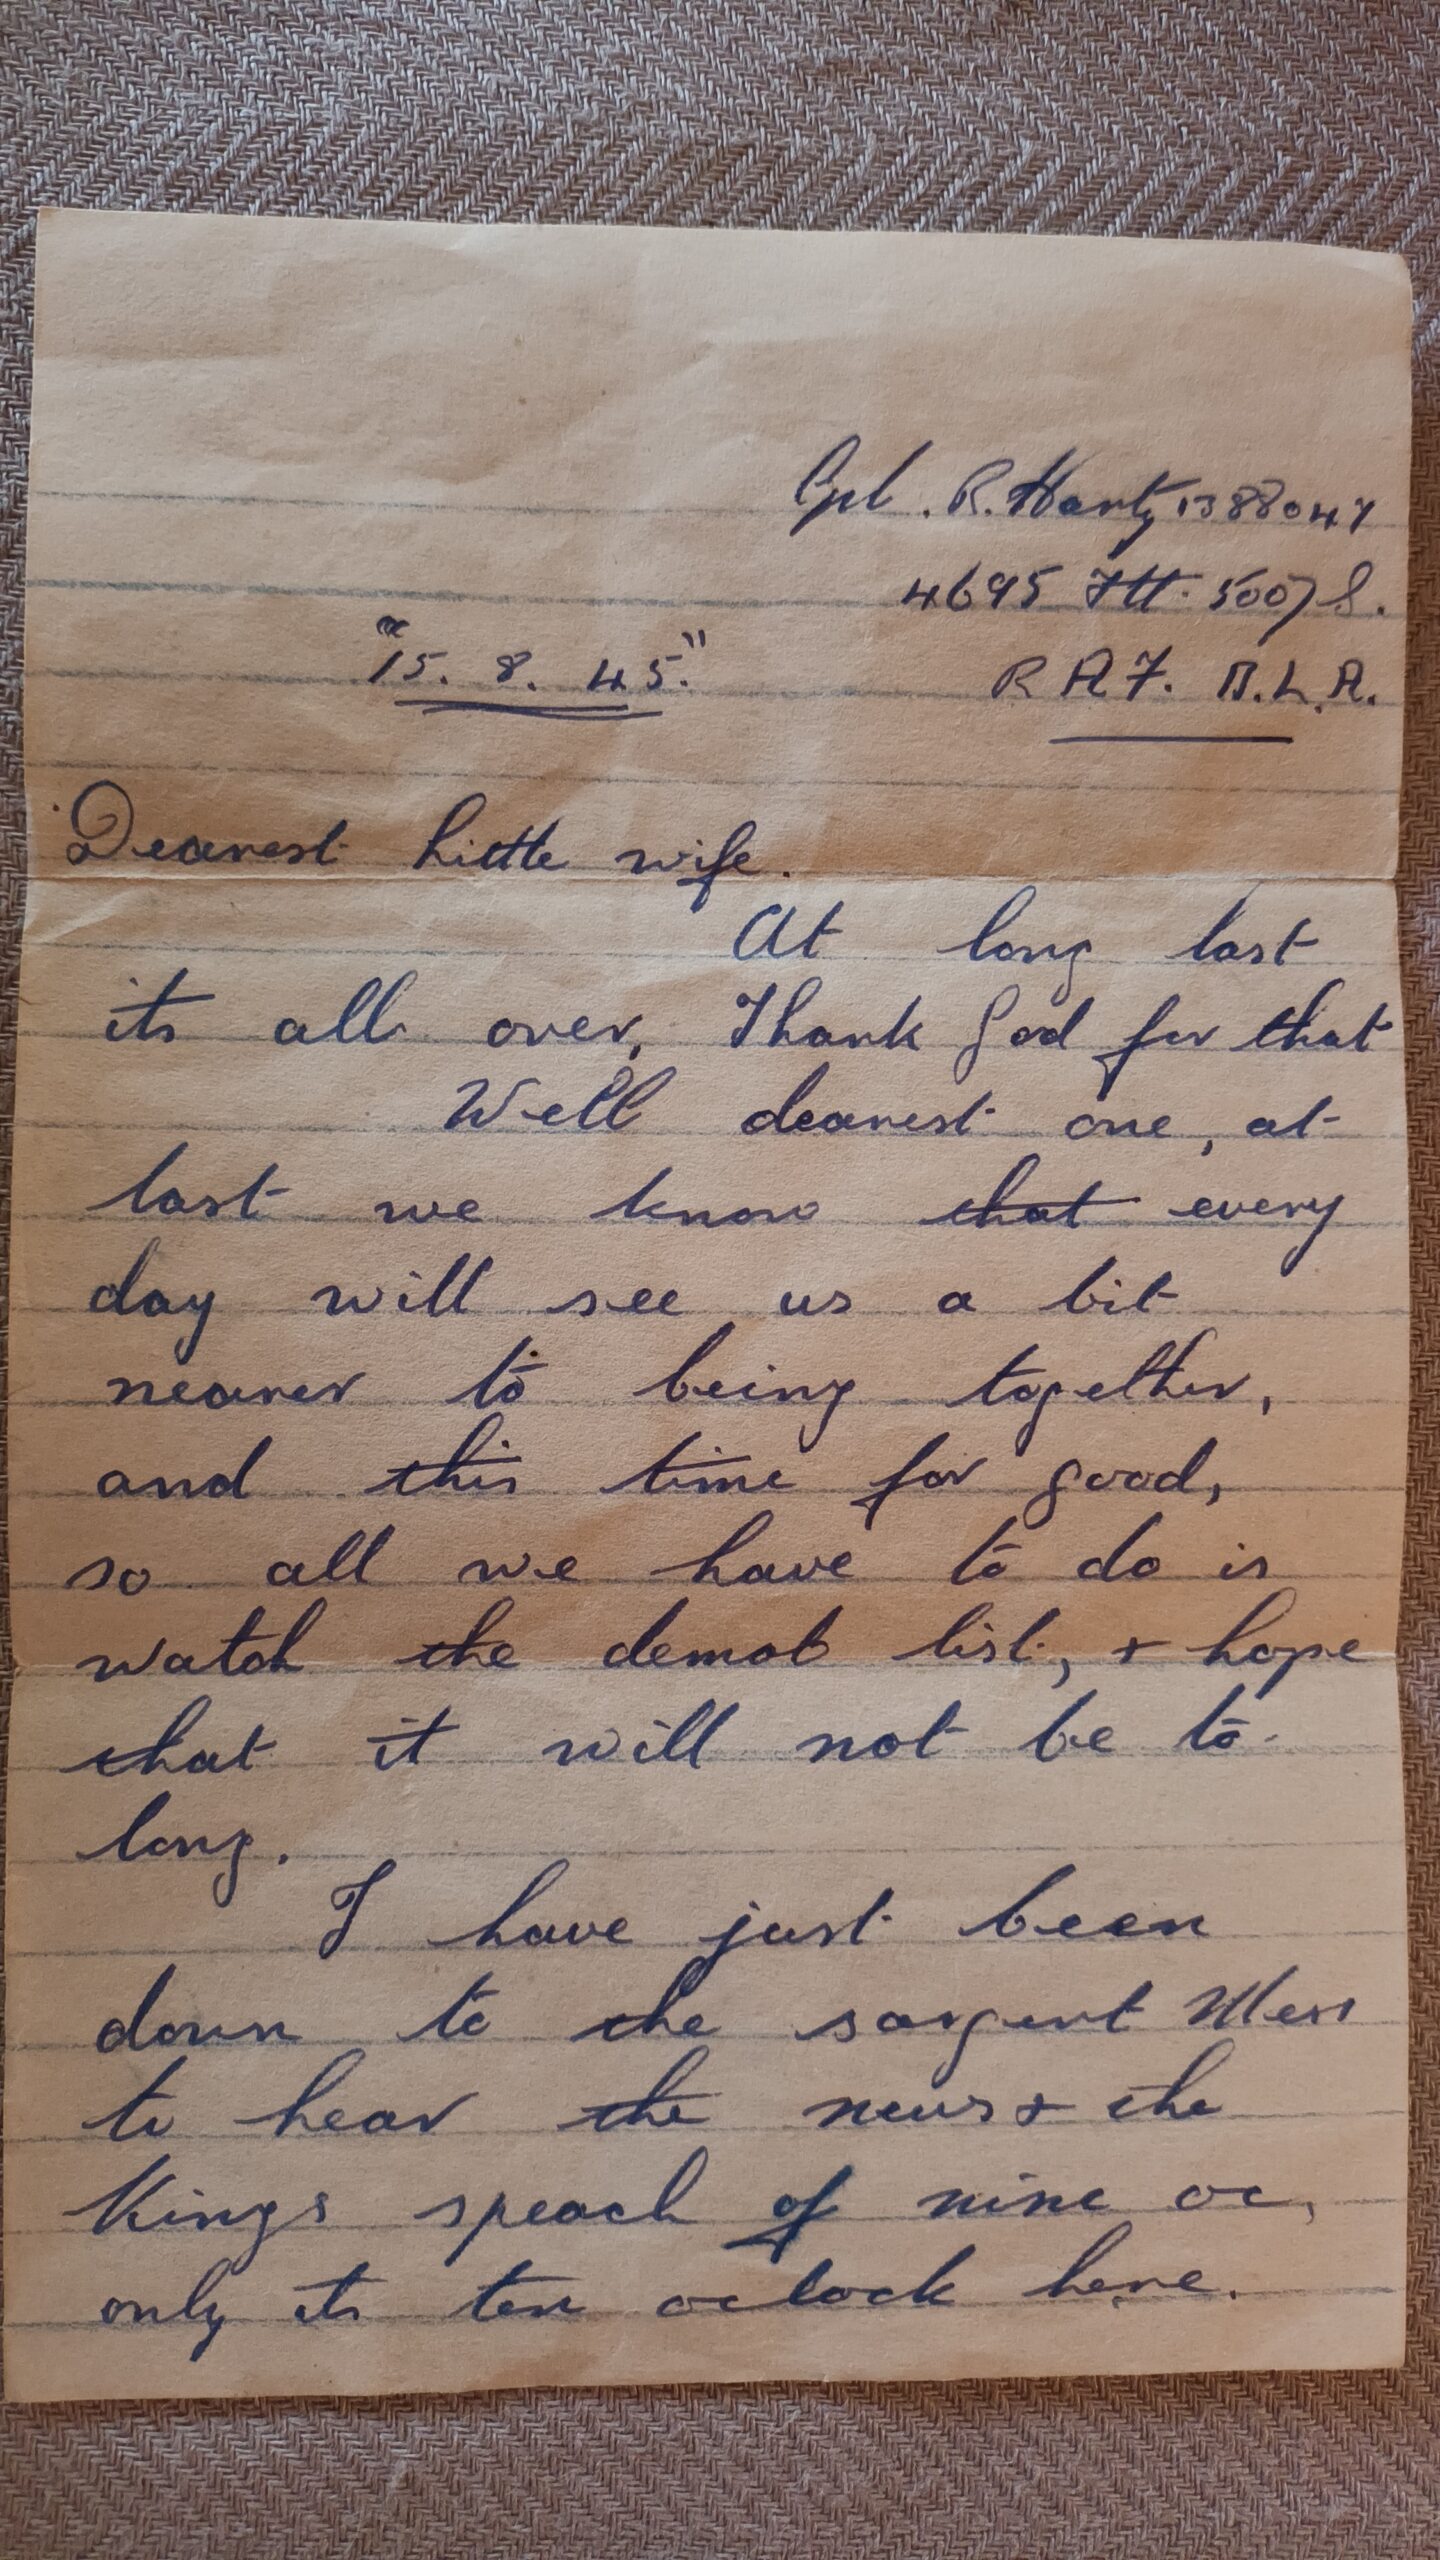 Cpl. R. Hartz 1388047
4695 Flt. 5007 S.
"15. 8. 45."
R A F. B.L.A.
Dearest Little wife.
At long last
its all over, Thank God for that
Well dearest one, at
last we know that every
day will see us a bit
nearer to being together,
and this time for good,
so all we have to do is
watch the demob list, + hope
that it will not be to
long.
I have just been
down to the sargent Mess
to hear the news + the
Kings speach of nine oc,
only its ten oclock here.